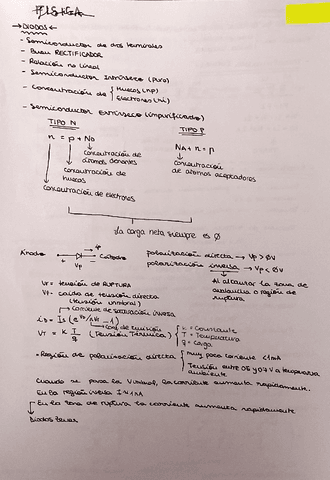 FÍSICA
→ DIODOS ←
- Semiconductor de dos terminales
- Buen RECTIFICADOR
- Relación no lineal
- Semiconductor Intrínseco (puro)
- Concentración de { Huecos (np)
Electrones (ni)
- Semiconductor Extrínseco (impurificado)
TIPO N
TIPO P
n = p + ND
NA + n = p
concentración de átomos donantes
concentración de huecos
concentración de electrones
concentración de atomos aceptadores
La carga neta siempre es Ø
Ánodo
Cátodo
VD
polarización directa → VD > ØV
polarización inversa → VD < ØV
Al alcanzar la zona de avalancha o región de ruptura
Vr = tensión de RUPTURA
VF = caída de tensión directa
(tensión umbral)
corriente de saturación inversa
iD = Is (e^VD/nVT - 1)
coef. de emisión
VT = K T/q (Tensión Térmica)
K = Constante
T = Temperatura
q = carga
- Región de polarización directa
muy poca corriente < 1mA
Tensión entre 0'5 y 0'7 V a temperatura ambiente
Cuando se pasa la V umbral, la corriente aumenta rapidamente.
En la región inversa I ≈ 1nA
En la zona de ruptura la corriente aumenta rapidamente
Diodos Zener